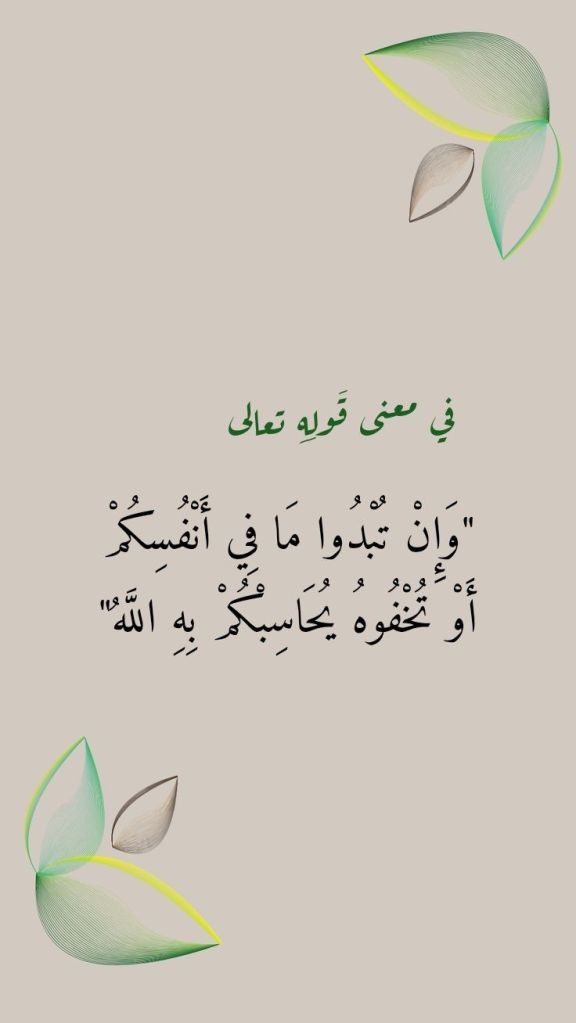 في معنى قَولِهِ تعالى
"وَإِنْ تُبْدُوا مَا فِي أَنْفُسِكُمْ
أَوْ تُخْفُوهُ يُحَاسِبْكُمْ بِهِ اللَّهُ"